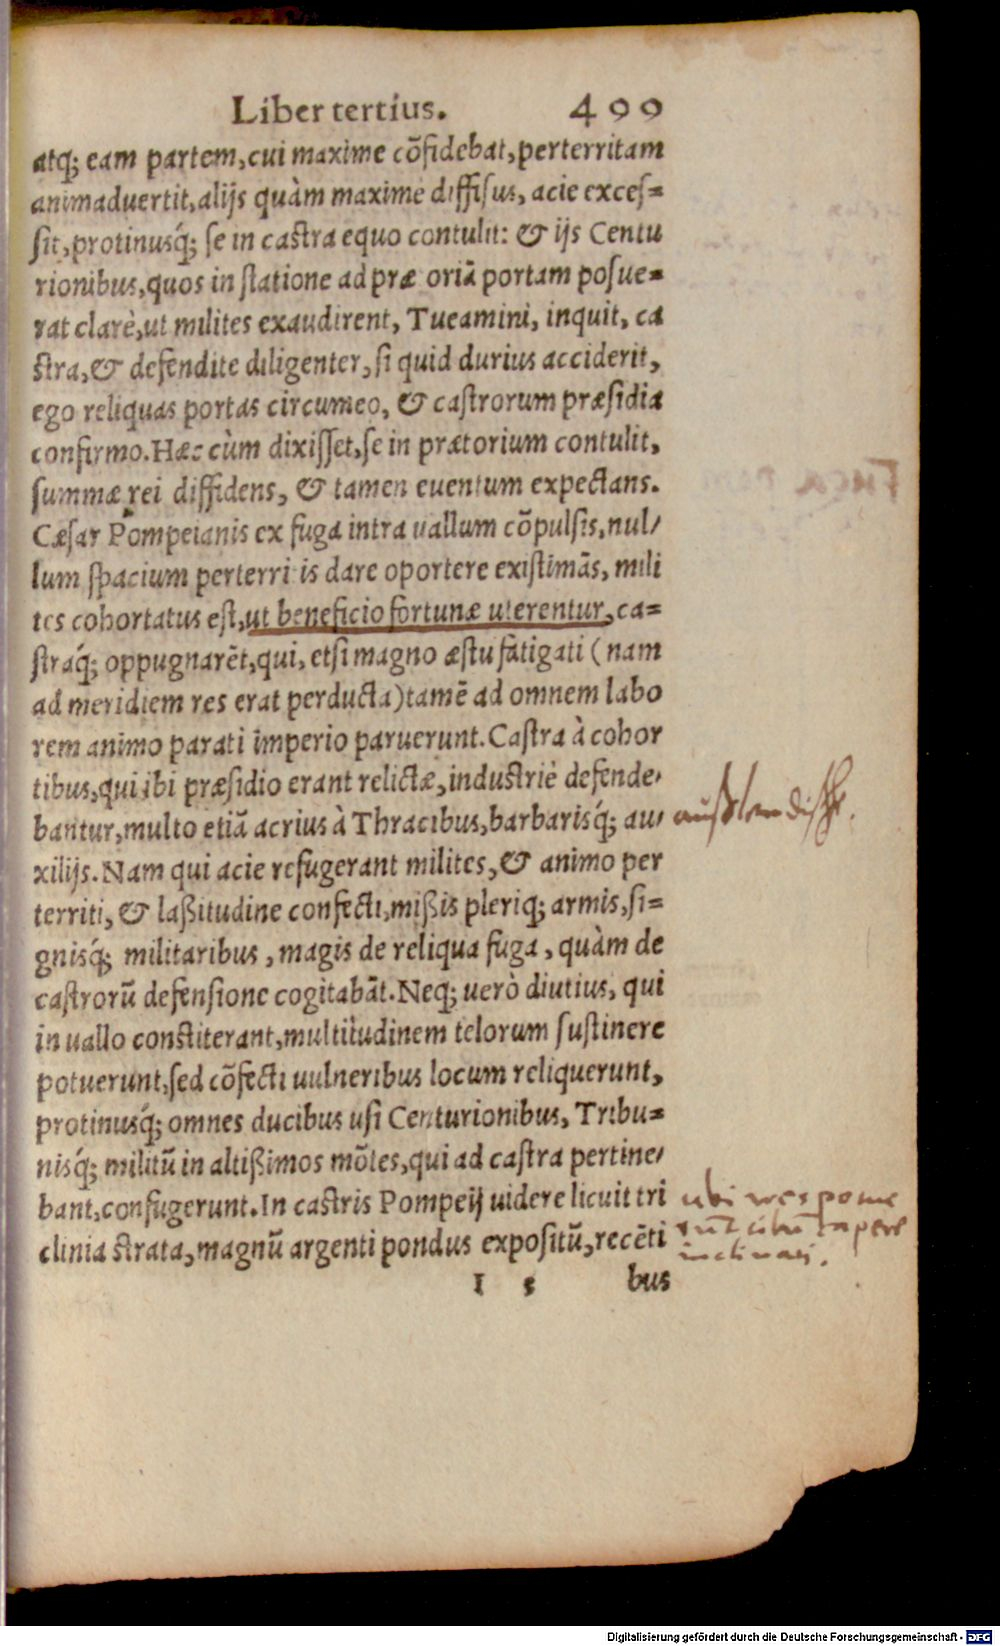 Liber tertius. 499
atq́; eam partem, cui maxime cõfidebat, perterritam
animaduertit, alijs quàm maxime diffisus, acie exces=
sit, protinusq́; se in castra equo contulit: & ijs Centu
rionibus, quos in statione ad præ oriā portam posue=
rat clarè, ut milites exaudirent, Tueamini, inquit, ca
stra, & defendite diligenter, si quid durius acciderit,
ego reliquas portas circumeo, & castrorum præsidia
confirmo. Hæc cùm dixisset, se in prætorium contulit,
summæ rei diffidens, & tamen euentum expectans.
Cæsar Pompeianis ex fuga intra uallum cõpulsis, nul/
lum spacium perterri is dare oportere existimās, mili
tes cohortatus est, ut beneficio fortunæ uterentur, ca=
straq́; oppugnarēt, qui, etsi magno æstu fatigati (nam
ad meridiem res erat perducta) tamē ad omnem labo
rem animo parati imperio paruerunt. Castra à cohor
tibus, qui ibi præsidio erant relictæ, industriè defende/
bantur, multo etiā acrius à Thracibus, barbarisq́; au/
xilijs. Nam qui acie refugerant milites, & animo per
territi, & laßitudine confecti, mißis pleriq; armis, si=
gnisq́; militaribus, magis de reliqua fuga, quàm de
castrorū defensione cogitabāt. Neq; uerò diutius, qui
in uallo constiterant, multitudinem telorum sustinere
potuerunt, sed cõfecti uulneribus locum reliquerunt,
protinusq́; omnes ducibus usi Centurionibus, Tribu=
nisq́; militū in altißimos mõtes, qui ad castra pertine/
bant, confugerunt. In castris Pompeij uidere licuit tri
clinia strata, magnū argenti pondus expositū, recēti
I 5 bus
ubi
Digitalisierung gefördert durch die Deutsche Forschungsgemeinschaft - DFG